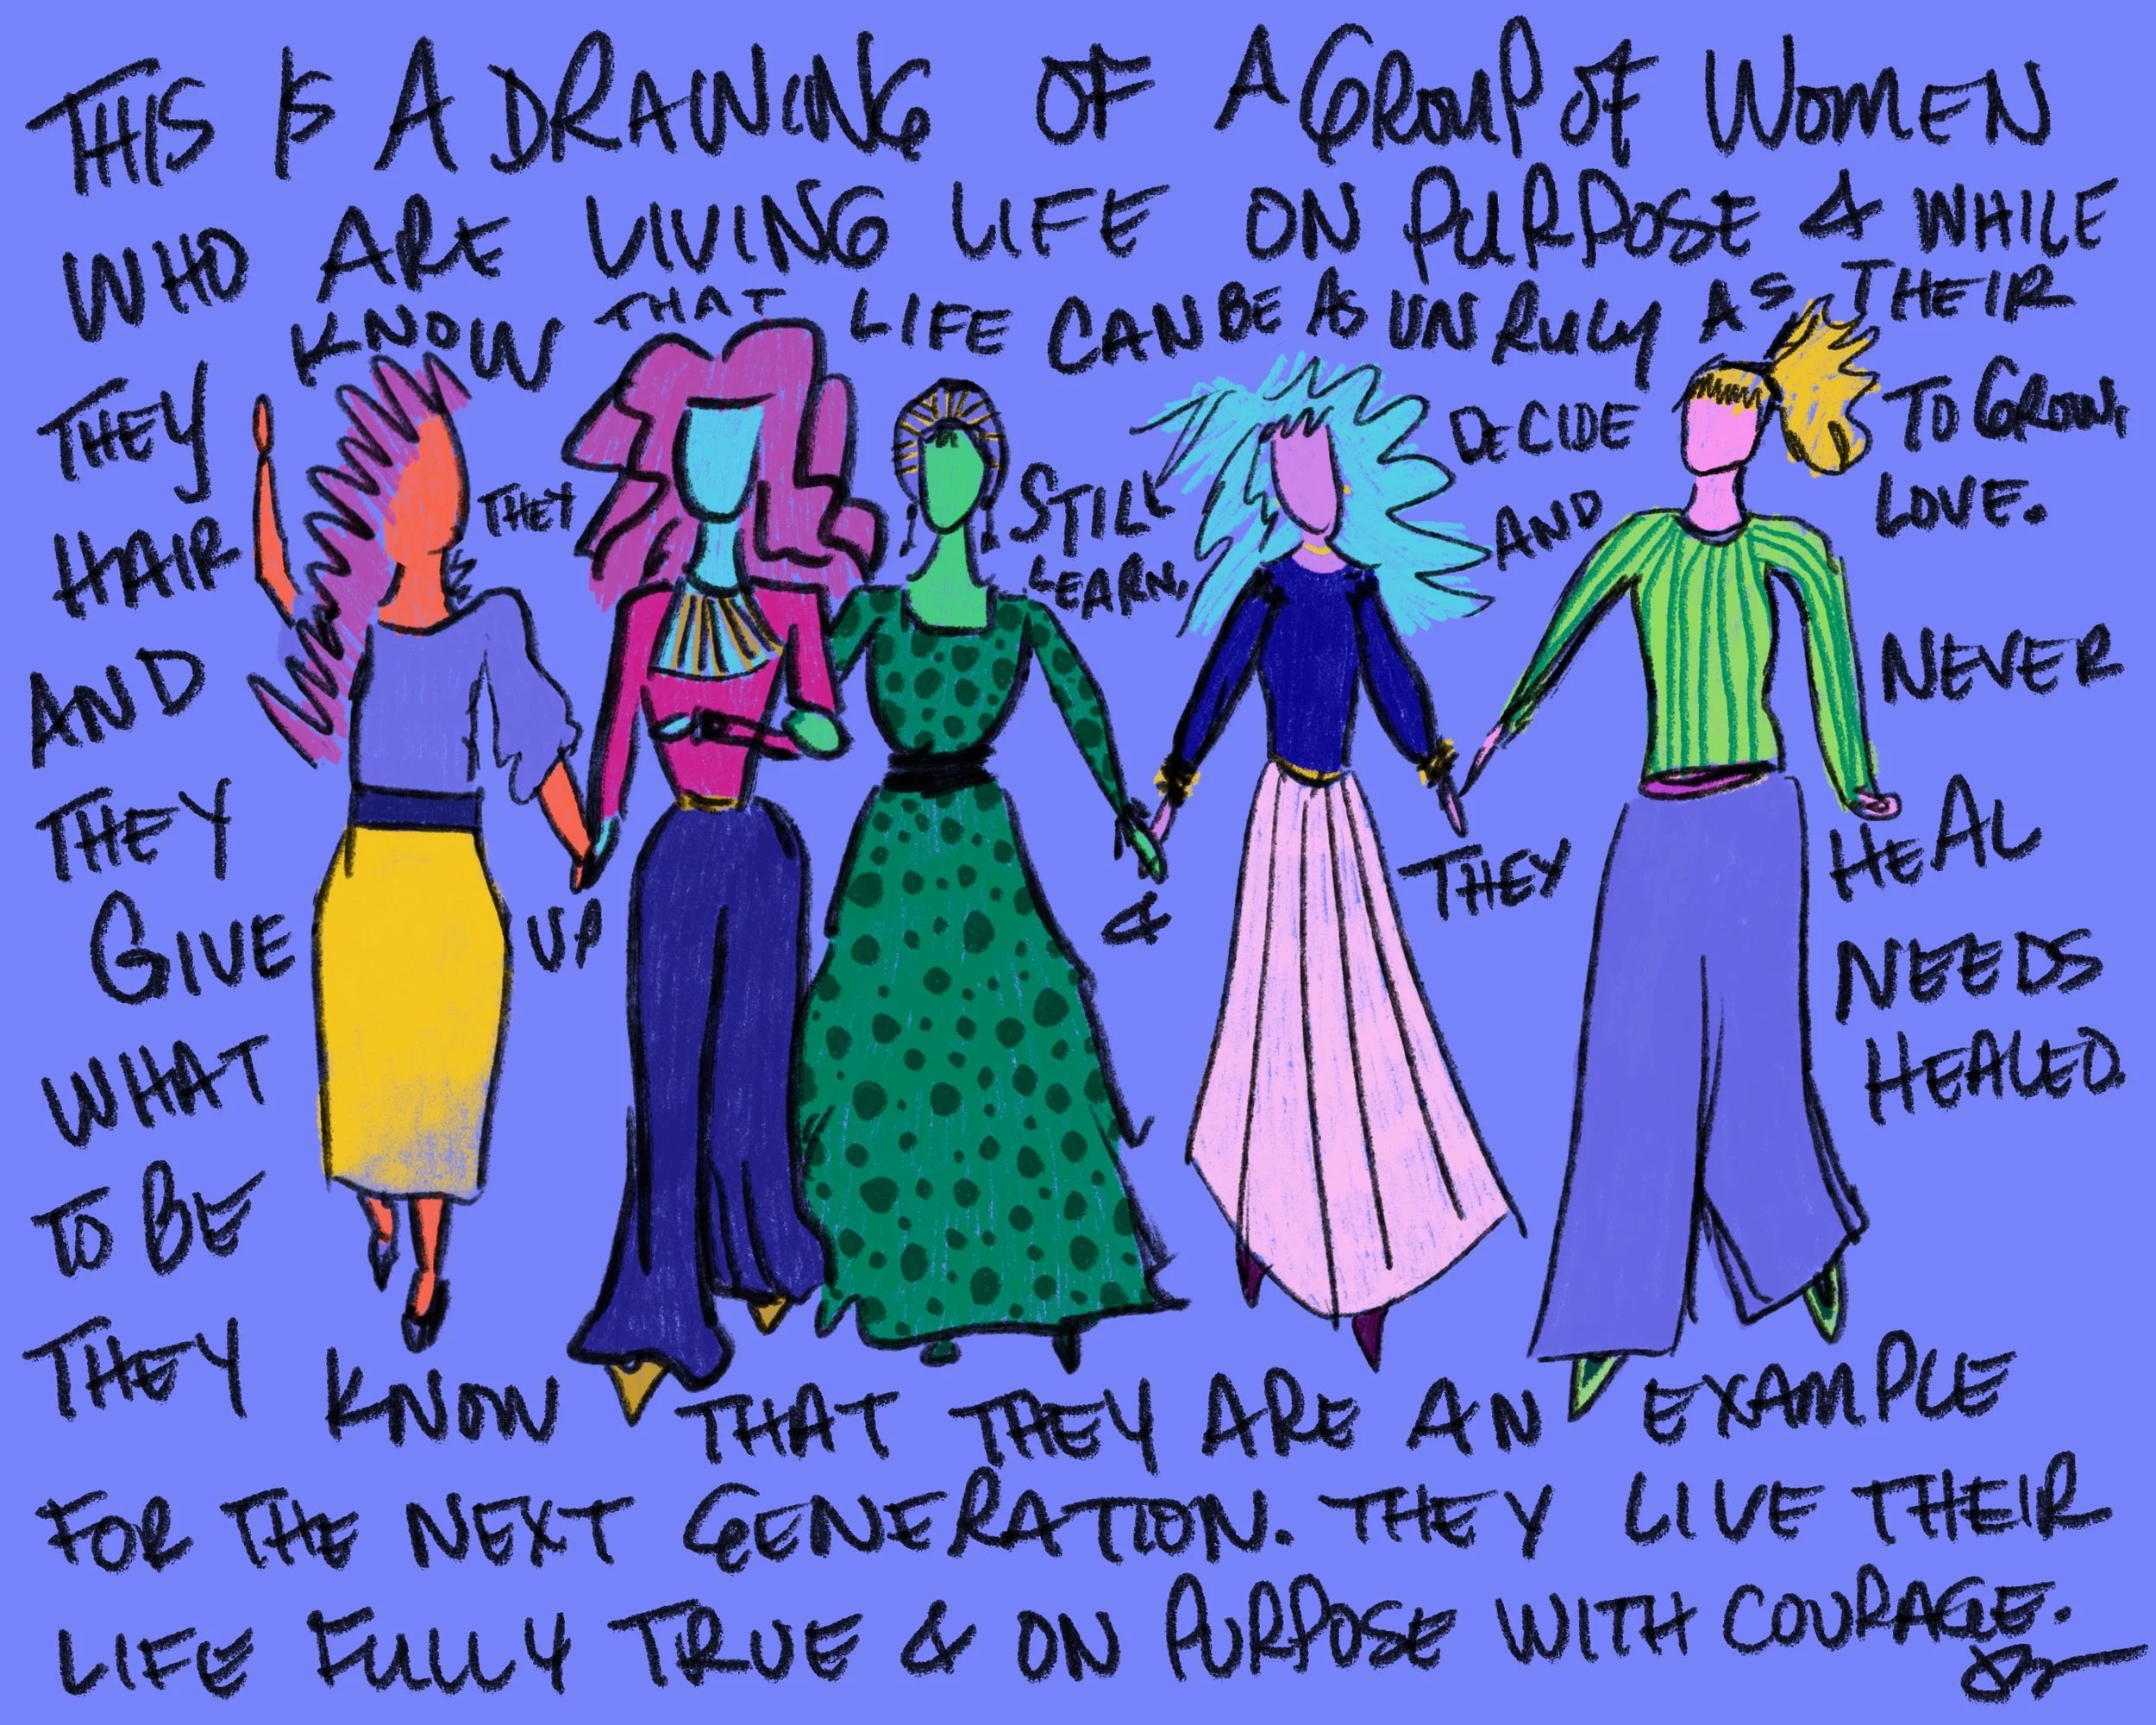 THIS IS A DRAWING OF A GROUP OF WOMEN
WHO ARE LIVING LIFE ON PURPOSE & WHILE
THEY KNOW THAT LIFE CAN BE AS UNRULY AS THEIR
HAIR THEY STILL DECIDE TO GROW,
LEARN, AND LOVE.
AND NEVER
THEY
GIVE UP & THEY HEAL
WHAT NEEDS
TO BE HEALED.
THEY KNOW THAT THEY ARE AN EXAMPLE
FOR THE NEXT GENERATION. THEY LIVE THEIR
LIFE FULLY TRUE & ON PURPOSE WITH COURAGE.